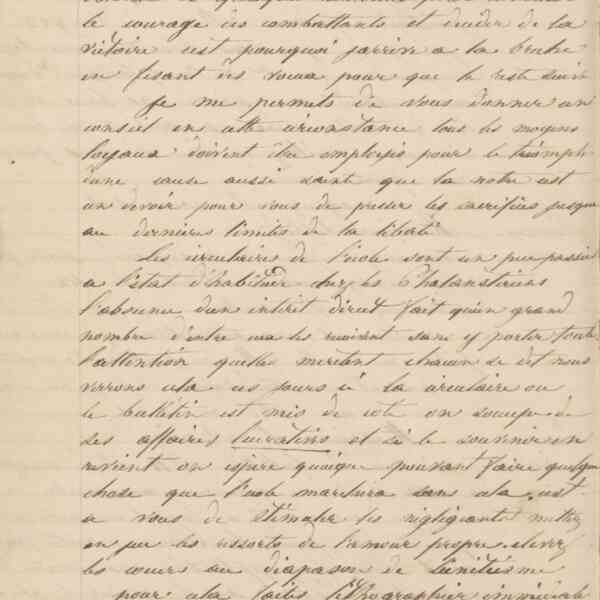 le courage des combattants et decider de la
victoire c'est pourquoi j'arrive a la breche
en fesant des voeux pour que le reste suive
Je me permets de vous donner un
conseil en cette circonstance tous les moyens
loyaux doivent être employés pour le triomph
d'une cause aussi sainte que la notre c'est
un devoir pour vous de presser les sacrifices jusqu
au dernieres limites de la liberté
Les circulaires de l'ecole sont un peu passées
a l'état d'habitude chez les Phalanstériens
l'absence d'un interit direct fait qu'un grand
nombre d'entre eux les recoivent sans y porter toute
l'attention quelles meritent chacun se dit nous
verrons cela ces jours ci la circulaire ou
le bulletin est mis de coté on s'occupe de
ses affaires lucratives et si le souvenir en
revient on espere quoique pouvant faire quelque
chose que l'ecole marchera sans cela c'est
a vous de stimuler les négligeants mettez
en jeu les ressorts de l'amour propre elevez
les coeurs au diapason de l'unitéisme
pour cela faites lithographier